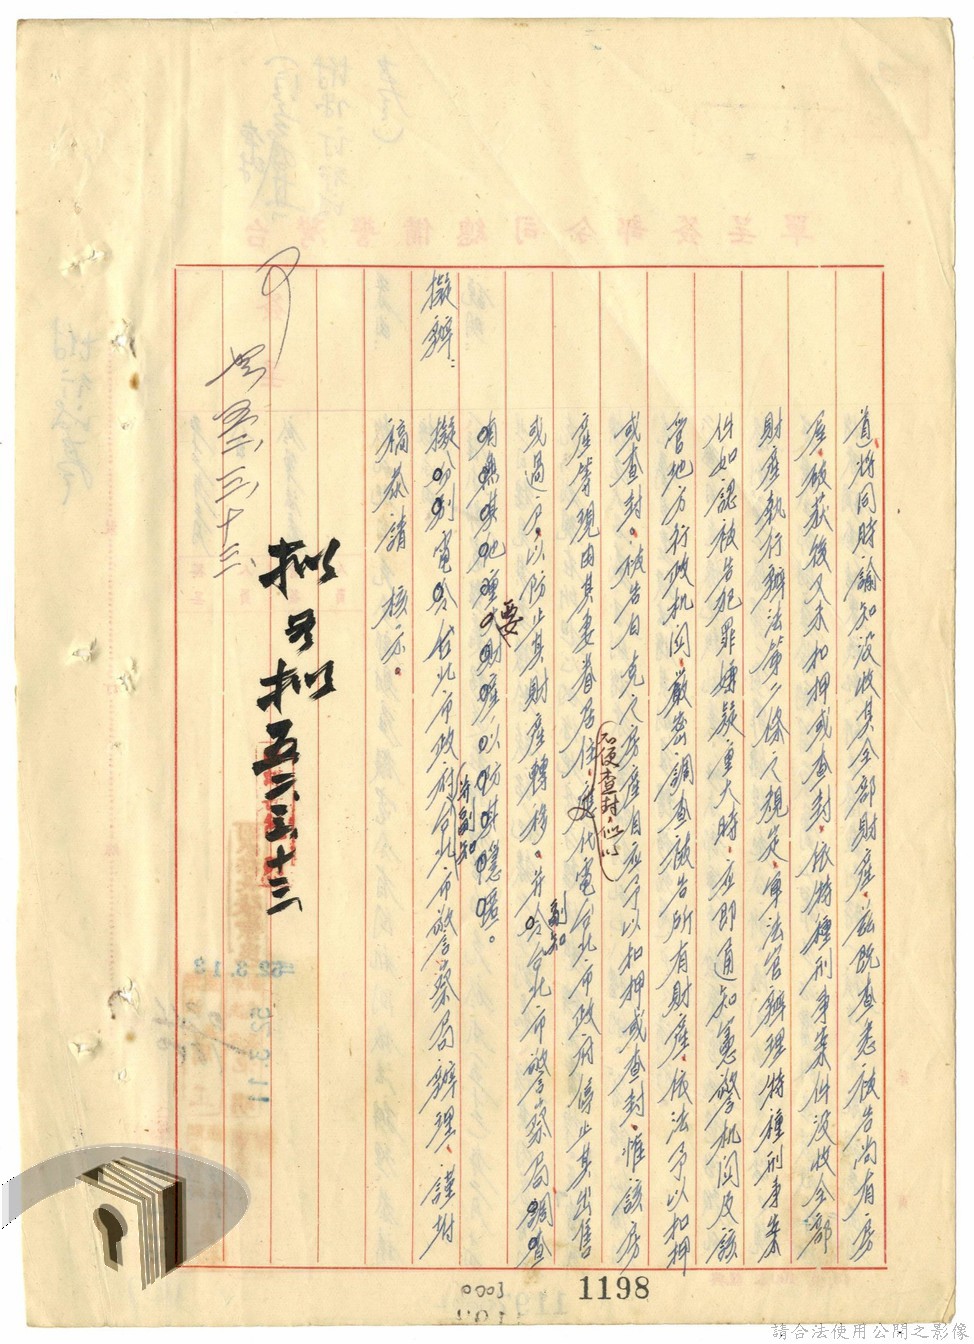 道將同時諭知沒收其全部財產、茲既查悉被告尚有房
產、破获後又未扣押或查封、依特種刑事案件沒收全部
財產執行辦法第二條之規定、軍法官辦理特種刑事案
件如認被告犯罪嫌疑重大時、应即通知憲警机関及該
管地方行政机関、嚴密調查被告所有財產、依法予以扣押
或查封。被告白克之房產自应予以扣押或查封、惟該房
產等現由其妻眷居住、應代電台北市政府停止其出售
不便查封、似以
或過户、以防止其財產轉移。并令台北市警察局調查
副知
有無其他種財產以防其隱匿。
要
擬辦：
擬分別電令台北市政府台北市警察局辦理、謹附
并副知
稿恭請 核示。
可
五二、三、十三
拟予拟
五二、三、十三
1198
0003
請合法使用公開之影像